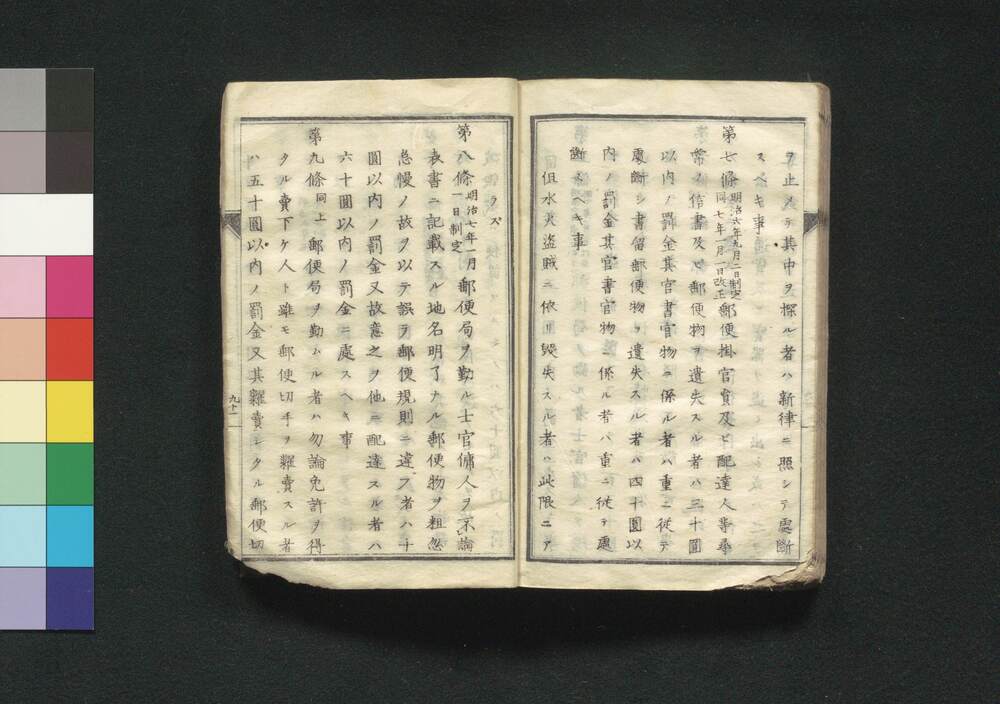 ヲ止メテ其中ヲ探ル者ハ新律ニ照シテ處斷
スヘキ事
第七條明治六年九月二日制定同七年一月一日改正郵便掛官員及ヒ配達人等尋
常ノ信書及ヒ郵便物ヲ遺失スル者ハ三十圓
以内ノ罰金其官書官物ニ係ル者ハ重ニ從テ
處斷シ書留郵便物ヲ遺失スル者ハ四十圓以
内ノ罰金其官書官物ニ係ル者ハ重ニ從テ處
斷スヘキ事
但水火盗賊ニ依リ毀失スル者ハ此限ニア
ラス
第八條明治七年一月一日制定郵便局ヲ勤ル士官傭人ヲ不論
表書ニ記載スル地名明了ナル郵便物ヲ粗忽
怠慢ノ故ヲ以テ誤ヲ郵便規則ニ違フ者ハ十
圓以内ノ罰金又故意之ヲ他ニ配達スル者ハ
六十圓以内ノ罰金ニ處スヘキ事
第九條同上郵便局ヲ勤ムル者ハ勿論免許ヲ得
タル賣下ケ人ト雖モ郵便切手ヲ糶賣スル者
ハ五十圓以内ノ罰金又其糶賣シタル郵便切
九十一